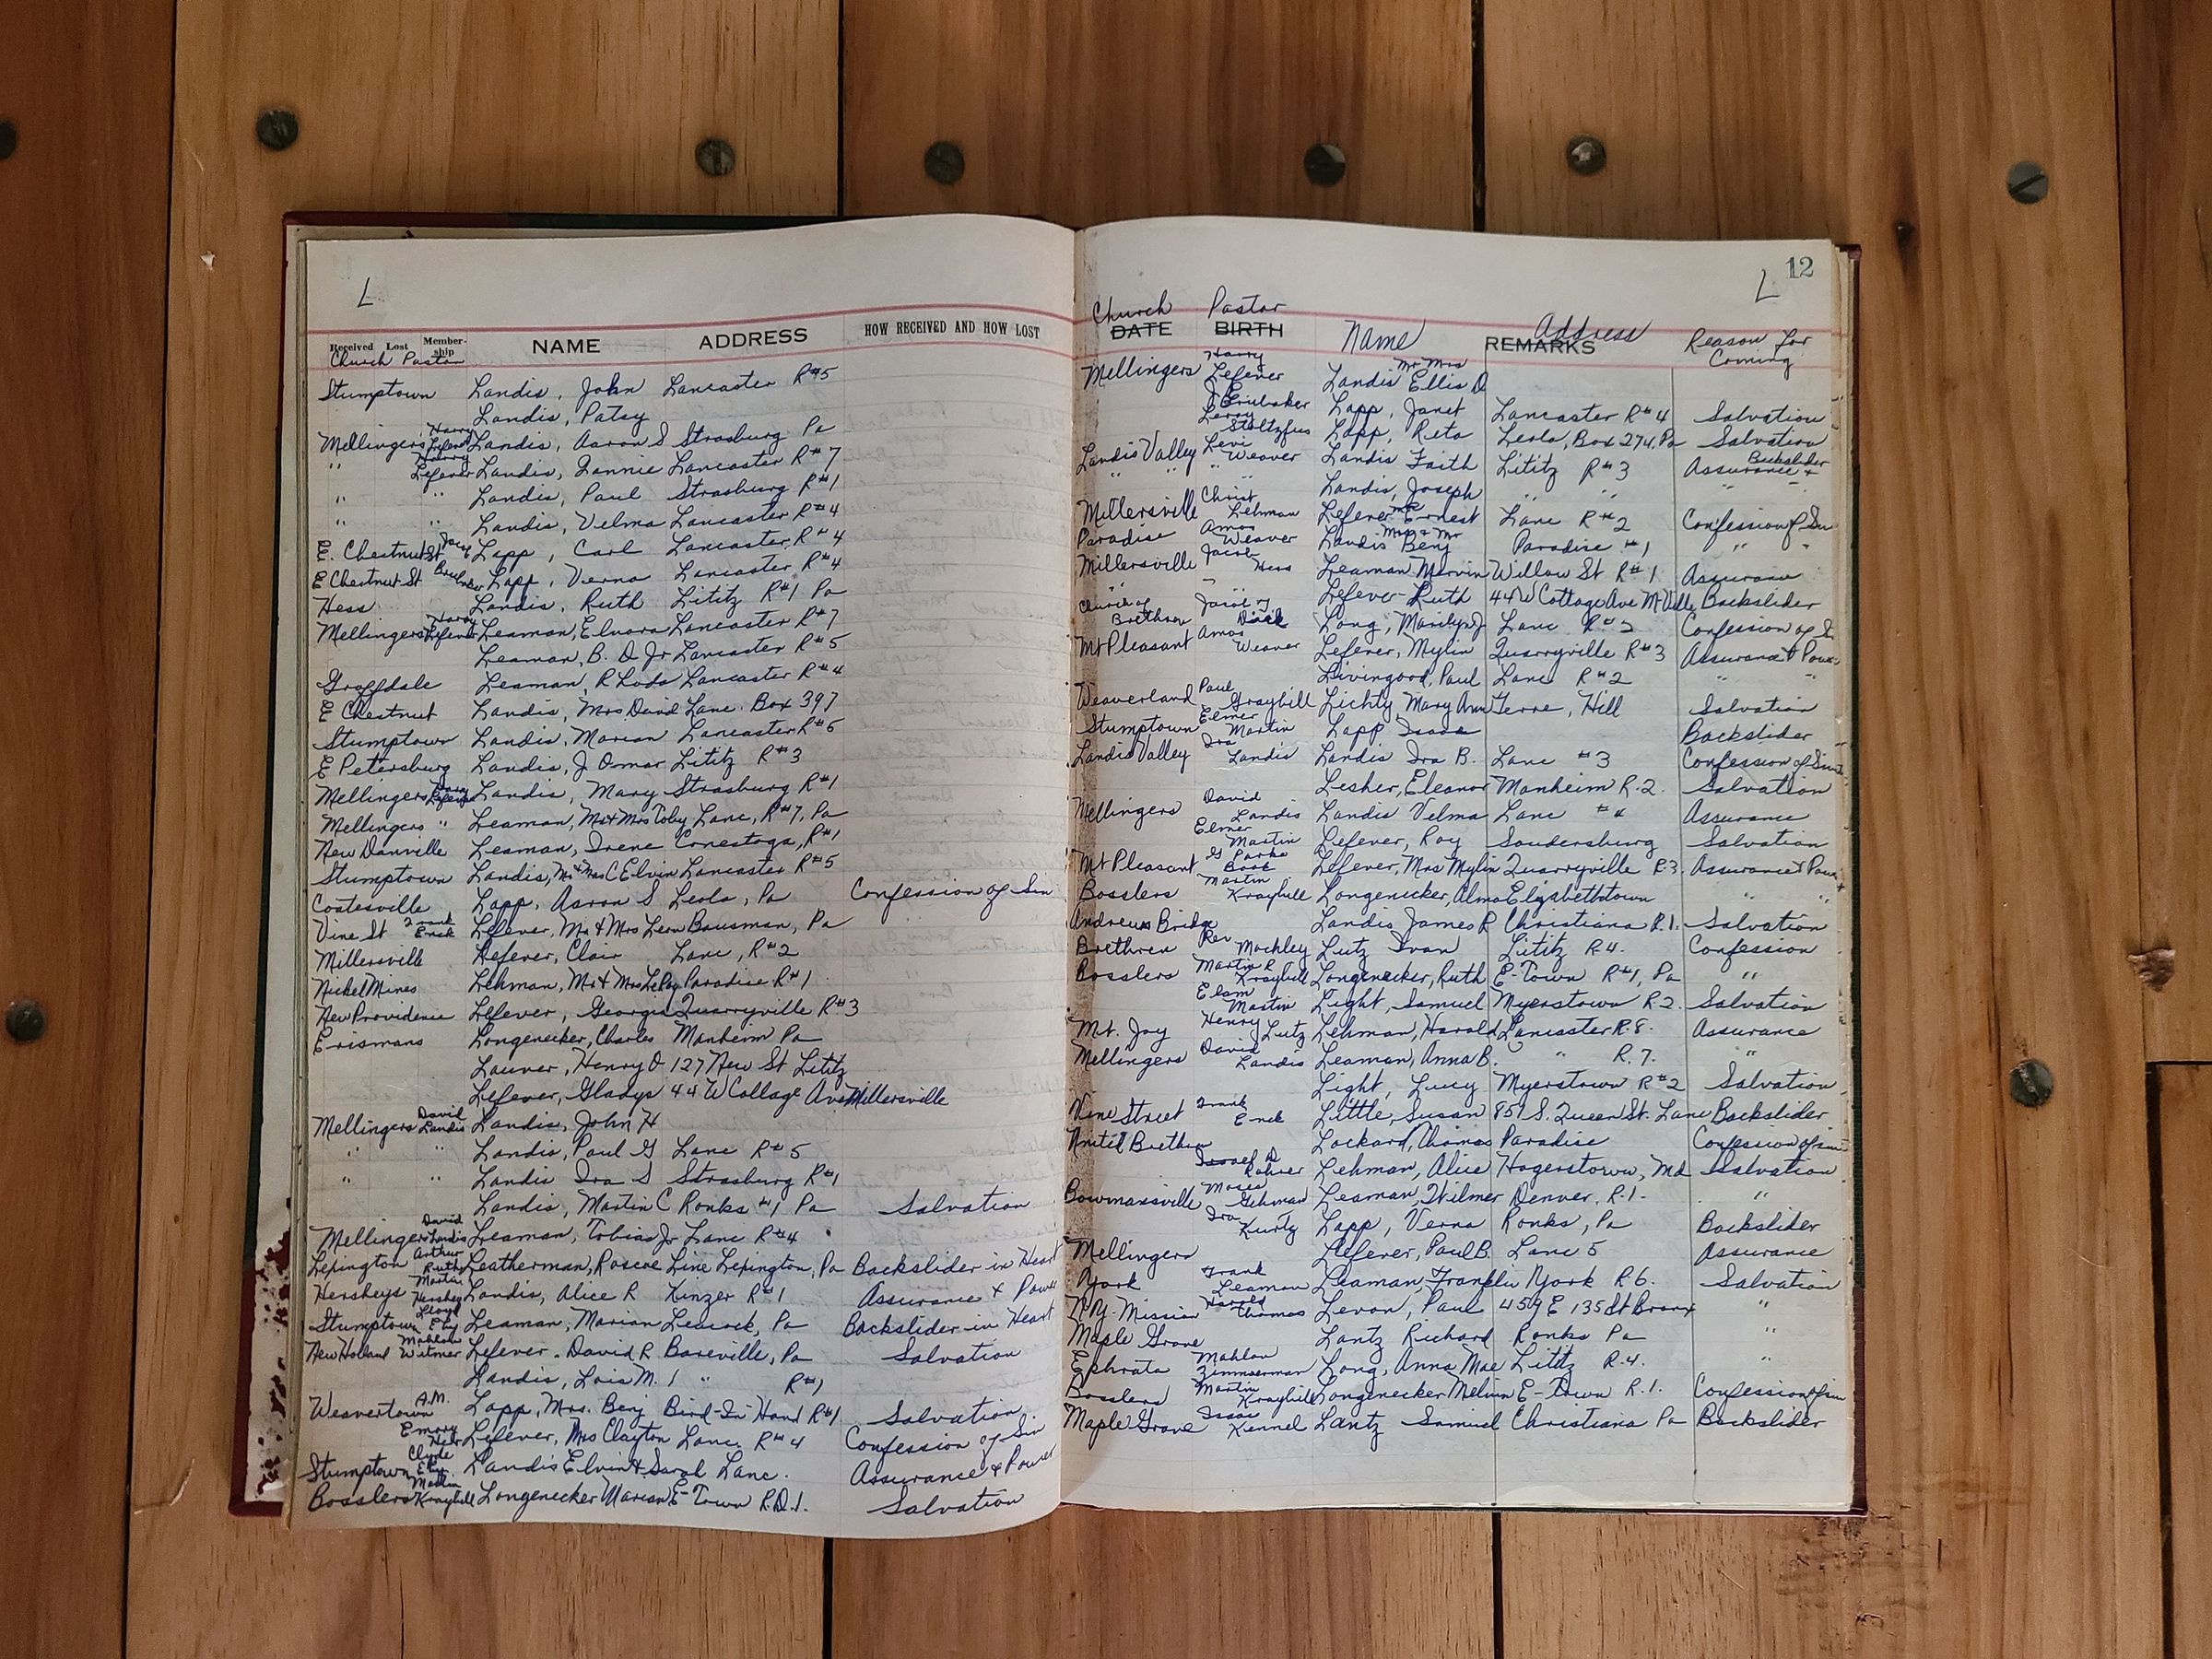 L
Received Lost Member-ship NAME ADDRESS HOW RECEIVED AND HOW LOST
Church Pastor
Stumptown Landis, John Lancaster R#5
Landis, Patsy
Mellingers Harry Lefever Landis, Aaron S Strasburg Pa
" Harry Lefever Landis, Fannie Lancaster R#7
" " Landis, Paul Strasburg R#1
" " Landis, Velma Lancaster R#4
E. Chestnut St Lapp, Carl Lancaster R#4
E Chestnut St Lapp, Verna Lancaster R#4
Hess Landis, Ruth Lititz R#1 Pa
Mellingers Harry Lefever Leaman, Elvara Lancaster R#7
Leaman, B. D Jr Lancaster R#5
Groffdale Leaman, Rhoda Lancaster R#4
E Chestnut Landis, Mrs David Lanc. Box 397
Stumptown Landis, Marian Lancaster R#5
E Petersburg Landis, J Omar Lititz R#3
Mellingers Harry Lefever Landis, Mary Strasburg R#1
Mellingers " Leaman, Mr + Mrs Toby Lanc, R#7, Pa
New Danville Leaman, Irene Conestoga, R#1
Stumptown Landis, Mr + Mrs C Elvin Lancaster R#5
Coatesville Lapp, Aaron S Leola, Pa Confession of Sin
Vine St Frank Enck Lefever, Mr & Mrs Leon Bausman, Pa
Millersville Lefever, Clair Lanc, R#2
Nickel Mines Lehman, Mr + Mrs LeRoy Paradise R#1
New Providence Lefever, Georgia Quarryville R#3
Erismans Longenecker, Charles Manheim Pa
Lauver, Henry O 127 New St Lititz
Lefever, Gladys 44 W Collage Ave Millersville
Mellingers David Landis Landis, John H
" " Landis, Paul G Lanc R#5
" " Landis Ira S Strasburg R#1
Landis, Martin C Ronks #1 Pa Salvation
Mellingers David Landis Leaman, Tobias Jr Lanc R#4
Lexington Arthur Ruth Leatherman, Roscoe Line Lexington, Pa Backslider in Heart
Hersheys Martin Hershey Landis, Alice R Kinzer R#1 Assurance + Power
Stumptown Lloyd Eby Leaman, Marian Leacock, Pa Backslider in Heart
New Holland Mahlon Witmer Lefever, David R Bareville, Pa Salvation
Landis, Lois M. 1 " R#1
Weavertown A.M. Lapp, Mrs. Benj Bird-In-Hand R#1 Salvation
Emory Lefever, Mrs Clayton Lanc. R#4 Confession of Sin
Stumptown Clyde Eby Landis Elvin + Sarah Lanc. Assurance + Power
Bosslers Martin Kraybill Longenecker Marian E-Town R.D.1. Salvation
L 12
Church Pastor
DATE BIRTH Name REMARKS Address Reason for Coming
Mellingers Harry Lefever Landis Mr Mrs Ellis D
J Brubaker Lapp, Janet Lancaster R#4 Salvation
Leroy Stoltzfus Lapp, Reta Leola, Box 274, Pa Salvation
Landis Valley Levi Weaver Landis Faith Lititz R#3 Assurance + Backslider
" " " Landis, Joseph " " " "
Millersville Christ Lehman Lefever Ernest Lanc R#2 Confession of Sin
Paradise Amos Weaver Landis Benj Paradise #1 " "
Millersville Jacob Hess Leaman Mervin Willow St R#1 Assurance
" " Lefever Ruth 44 W Cottage Ave M-Ville Backslider
Church of Brethren Jacob Long, Marilyn J Lanc R#2 Confession of S
Mt Pleasant Amos Weaver Lefever, Mylin Quarryville R#3 Assurance + Power
Livingood, Paul Lanc R#2 " "
Weaverland Paul Graybill Lichty Mary Ann Terre, Hill Salvation
Stumptown Elmer Martin Lapp Isaac Backslider
Landis Valley Ira Landis Landis Ira B. Lanc #3 Confession of Sin
Lesher, Eleanor Manheim R.2. Salvation
Mellingers David Landis Landis Velma Lanc #4 Assurance
Elmer Martin Lefever, Roy Soudersburg Salvation
Mt Pleasant G Parke Book Lefever, Mrs Mylin Quarryville R.3. Assurance + Power
Bosslers Martin Kraybill Longenecker, Alma Elizabethtown " "
Andrews Bridge Landis James R Christiana R.1. Salvation
Brethren Rev Mockley Lutz Ivan Lititz R4. Confession
Bosslers Martin R Kraybill Longenecker, Ruth E-Town R#1, Pa "
Elam Martin Light, Samuel Myerstown R2. Salvation
Mt. Joy Henry Lutz Lehman, Harold Lancaster R.8. Assurance
Mellingers David Landis Leaman, Anna B. " R.7. "
Light, Lucy Myerstown R#2 Salvation
Vine Street Frank Enck Little, Susan 851 S. Queen St. Lanc Backslider
United Brethren Lockard, Thomas Paradise Confession of sin
Israel D Rohrer Lehman, Alice Hagerstown, Md Salvation
Bowmansville Moses Gehman Leaman, Wilmer Denver, R.1. "
Ira Kurtz Lapp, Verna Ronks, Pa Backslider
Mellingers Lefever, Paul B. Lanc 5 Assurance
York Frank Leaman Leaman, Franklin York R.6. Salvation
N.Y. Mission Harold Thomas Levan, Paul 459 E 135 St Bronx "
Maple Grove Lantz Richard Ronks Pa "
Ephrata Mahlon Zimmerman Long, Anna Mae Lititz R.4. "
Bosslers Martin Kraybill Longenecker Melvin E-Town R.1. Confession of sin
Maple Grove Isaac Kennel Lantz Samuel Christiana Pa Backslider